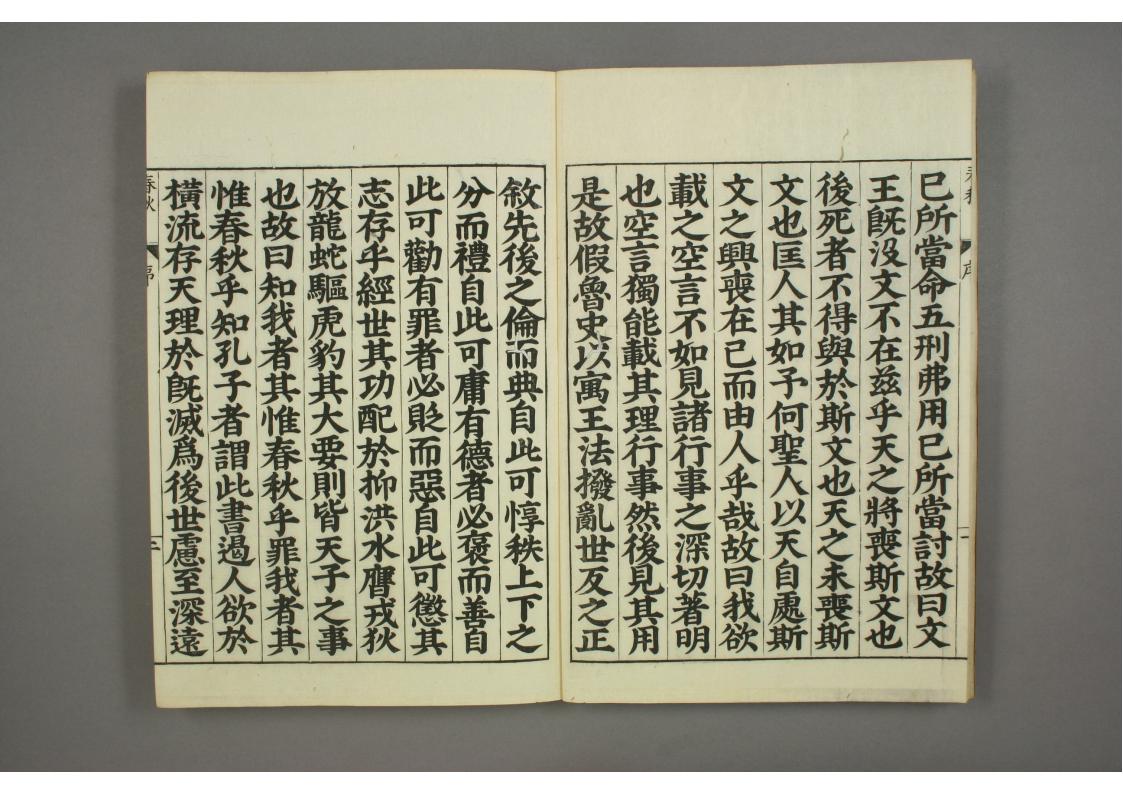 已所當命五刑弗用已所當討故曰文
王旣沒文不在茲乎天之將喪斯文也
後死者不得與於斯文也天之未喪斯
文也匡人其如予何聖人以天自處斯
文之興喪在己而由人乎哉故曰我欲
載之空言不如見諸行事之深切著明
也空言獨能載其理行事然後見其用
是故假魯史以寓王法撥亂世反之正
敘先後之倫而典自此可惇秩上下之
分而禮自此可庸有德者必褒而善自
此可勸有罪者必貶而惡自此可懲其
志存乎經世其功配於抑洪水膺戎狄
放龍蛇驅虎豹其大要則皆天子之事
也故曰知我者其惟春秋乎罪我者其
惟春秋乎知孔子者謂此書遏人欲於
橫流存天理於旣滅爲後世慮至深遠
春秋
序
二